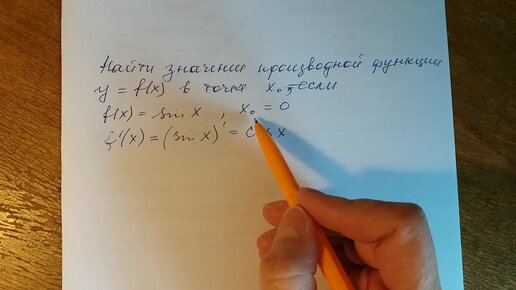 Найти значение производной функции
y = f(x) в точке x₀, если
f(x) = sin x , x₀ = 0
f'(x) = (sin x)' = cos x